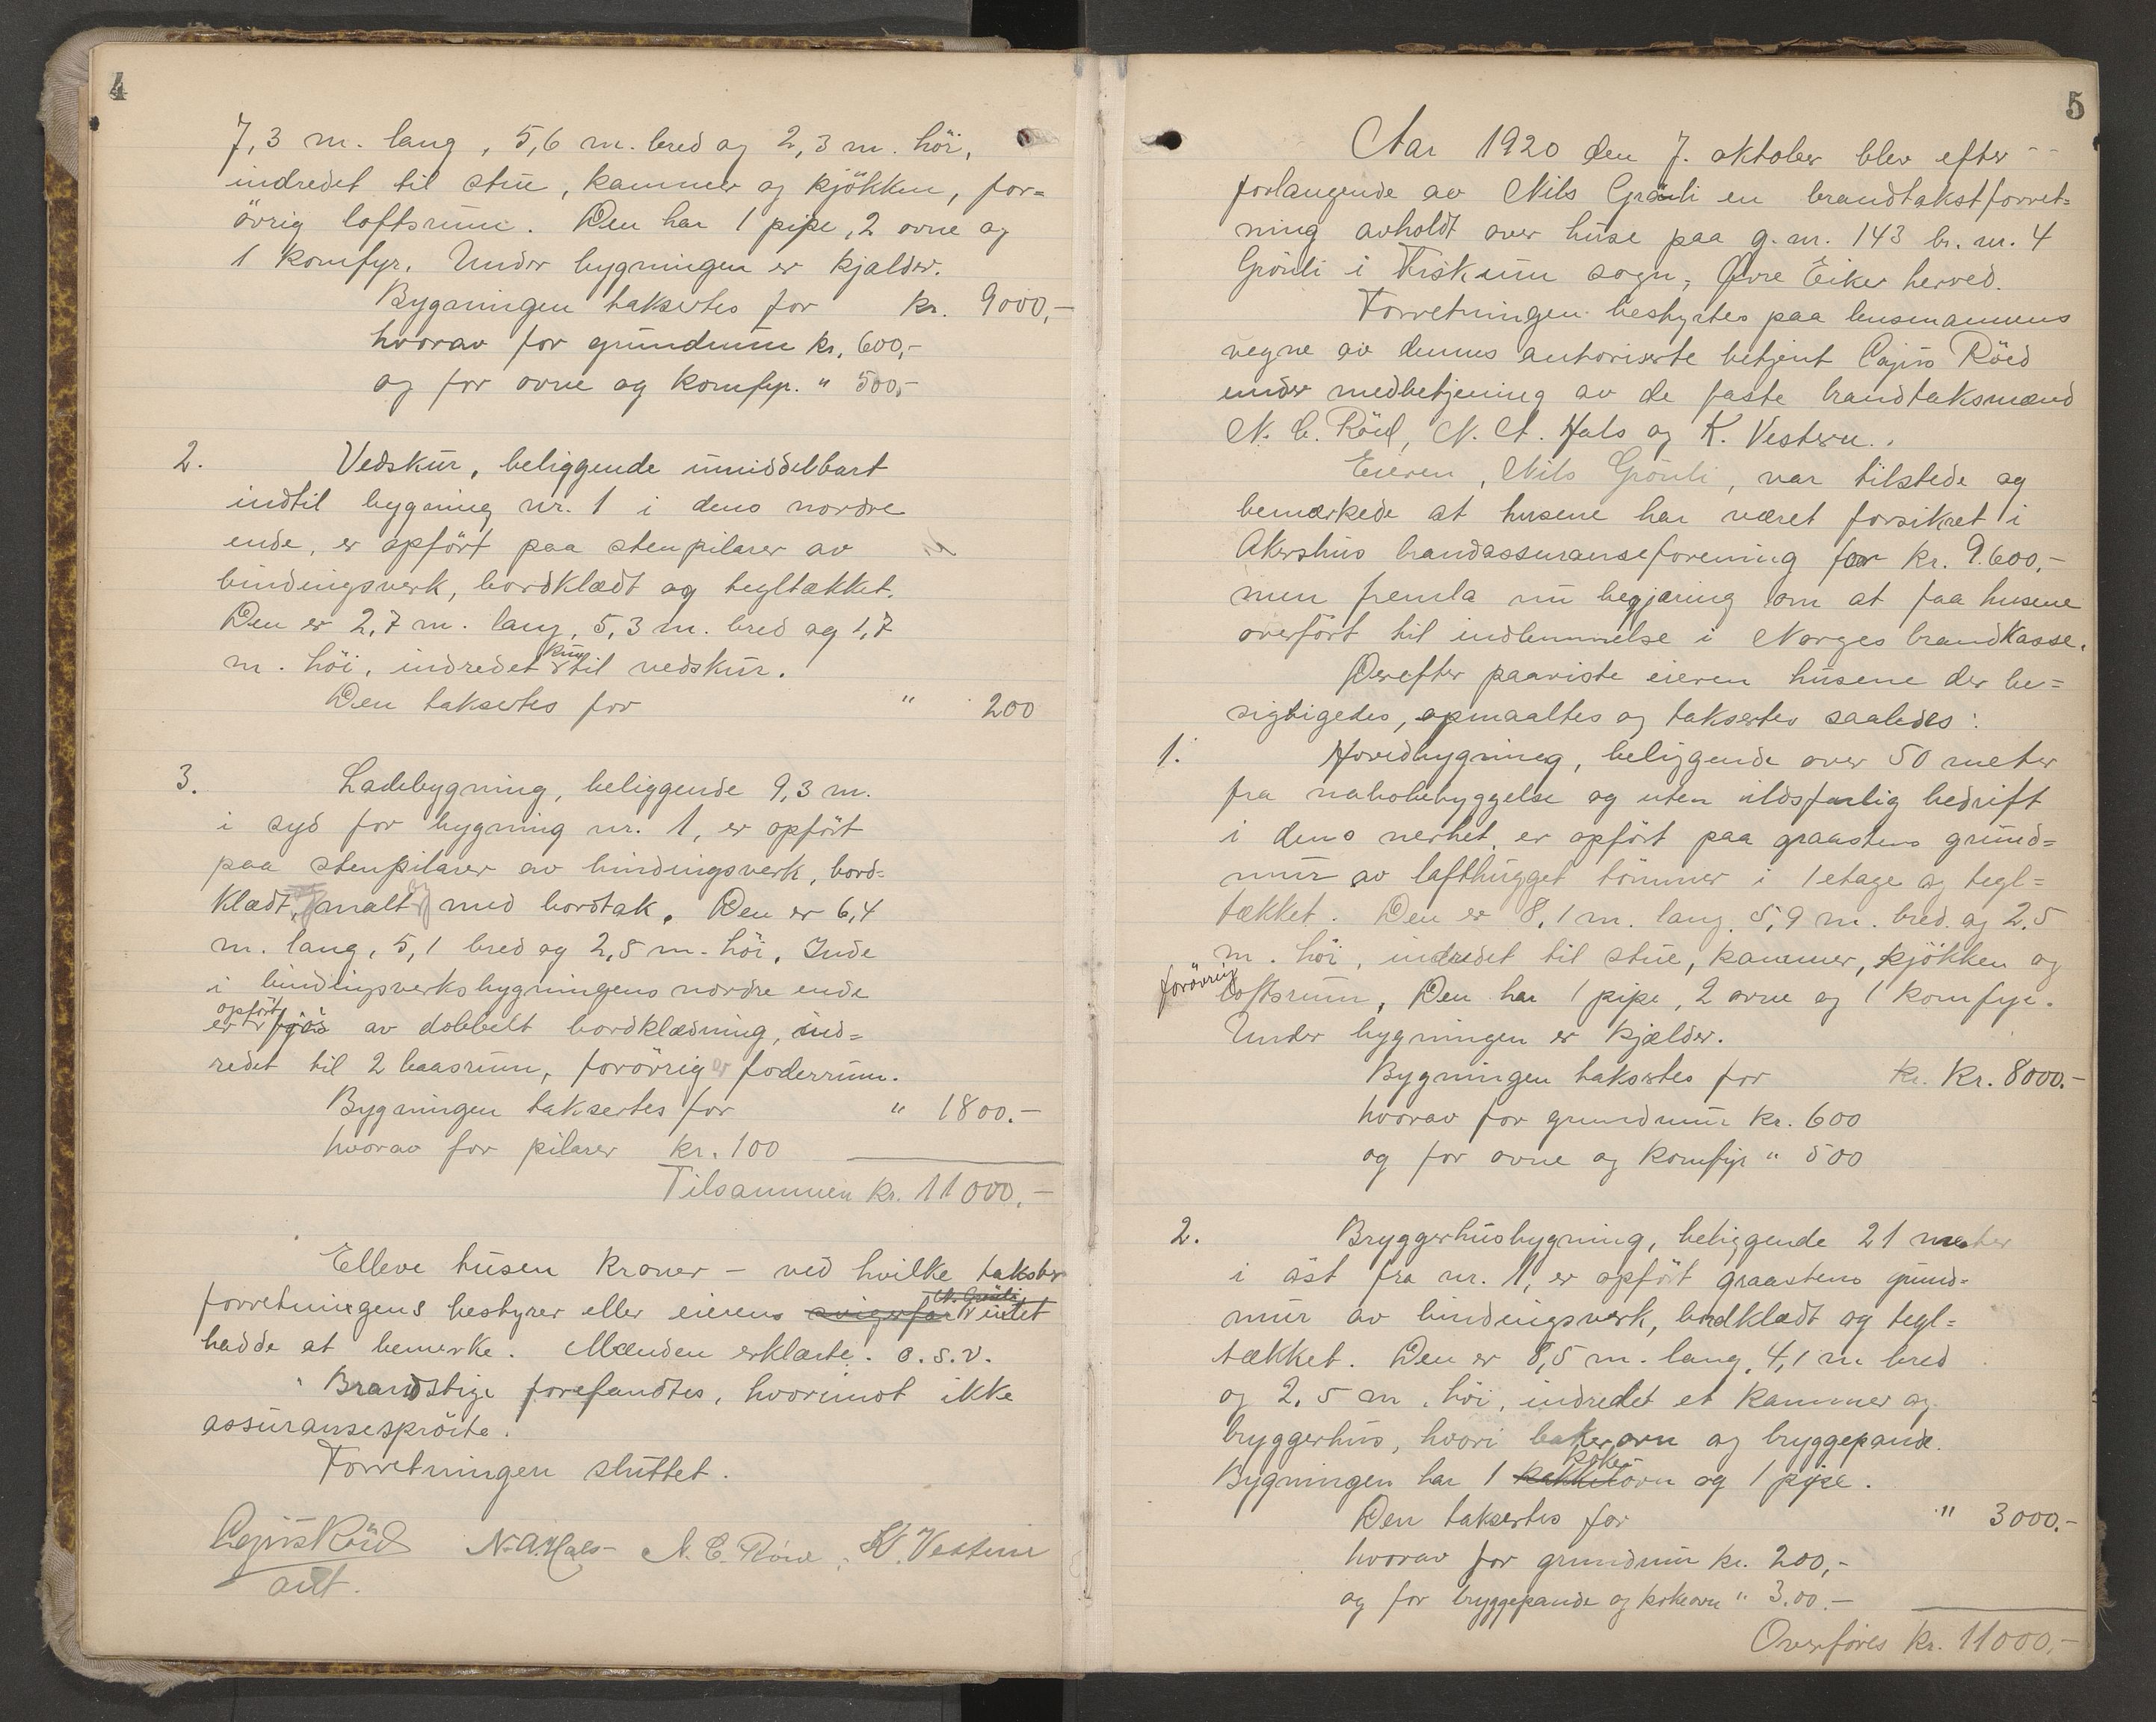 4
7,3 m. lang, 5,6 m. bred og 2,3 m. höi,
indredet til stue, kammer og kjökken, for=
övrig loftsrum. Den har 1 pipe, 2 ovne og
1 komfyr. Under bygningen er kjælder.
Bygningen taksertes for kr. 9000,-
hvorav for grundmur kr. 600,-
og for ovne og komfyr. " 500,-
2. Vedskur, beliggende umiddelbart
indtil bygning nr. 1 i dens nordre
ende, er opfört paa stenpilarer av
bindingsverk, bordklædt og tegltækket.
Den er 2,7 m. lang, 5,3 m. bred og 1,7
m. höi, indredet kun til vedskur.
Den taksertes for " 200
3. Ladebygning, beliggende 9,3 m.
i syd for bygning nr. 1, er opfört
paa stenpilarer av bindingsverk, bord=
klædt, malt og med bordtak. Den er 6,4
m. lang, 5,1 bred og 2,5 m. höi. Inde
i bindingsverksbygningens nordre ende
er opfört fjös av dobbelt bordklædning, ind=
redet til 2 baasrum, forövrig foderrum.
Bygningen taksertes for " 1800.-
hvorav for pilarer kr. 100
Tilsammen kr. 11000,-
Elleve tusen kroner - ved hvilke takster
forretningens bestyrer eller eierens svigerfar N. Grönli intet
hadde at bemerke. Mænden erklærte. o.s.v.
Brandstige forefandtes, hvorimot ikke
assuransespröite.
Forretningen sluttet.
Cajus Röed N.A. Hals N. C. Röed, K. Vestern
aut.
5
Aar 1920 den 7. oktober blev efter
forlangende av Nils Grönli en brandtakstforret=
ning avholdt over huse paa g. nr. 143 br. nr. 4
Grönli i Fiskum sogn, Øvre Eiker herred.
Forretningen bestyrtes paa lensmannens
vegne av dennes autoriserte betjent Cajus Röed
under medbetjening av de faste brandtaksmænd
N. C. Röed, N. A. Hals og K. Vestern.
Eieren, Nils Grönli, var tilstede og
bemærkede at husene har været forsikret i
Akershus brandassuranseforening for kr. 9.600,-
men fremla nu begjæring om at faa husene
overfört til indlemmelse i Norges brandkasse.
Derefter paaviste eieren husene der be=
sigtigedes, opmaaltes og taksertes saaledes:
1. Hovedbygning, beliggende over 50 meter
fra nabobebyggelse og uten ildsfarlig bedrift
i dens nerhet, er opfört paa graastens grund=
mur av lafthugget tömmer i 1 etage og tegl=
tækket. Den er 8,1 m. lang, 5,9 m. bred og 2,5
m. höi, indredet til stue, kammer, kjökken og
forövrig loftsrum. Den har 1 pipe, 2 ovne og 1 komfyr.
Under bygningen er kjælder.
Bygningen taksertes for kr. Kr. 8000.-
hvorav for grundmur kr. 600
og for ovne og komfyr " 500
2. Bryggerhusbygning, beliggende 21 meter
i öst fra nr. 1, er opfört graastens grund=
mur av bindingsverk, bordklædt og tegl=
tækket. Den er 8,5 m. lang, 4,1 m bred
og 2,5 m. höi, indredet et kammer og
bryggerhus, hvori bakerovn og bryggepande.
Bygningen har 1 kakkelovn koke og 1 pipe.
Den taksertes for " 3000.-
hvorav for grundmur kr. 200,-
og for bryggepande og kokeovn " 3.00.-
Overföres kr. 11000,-